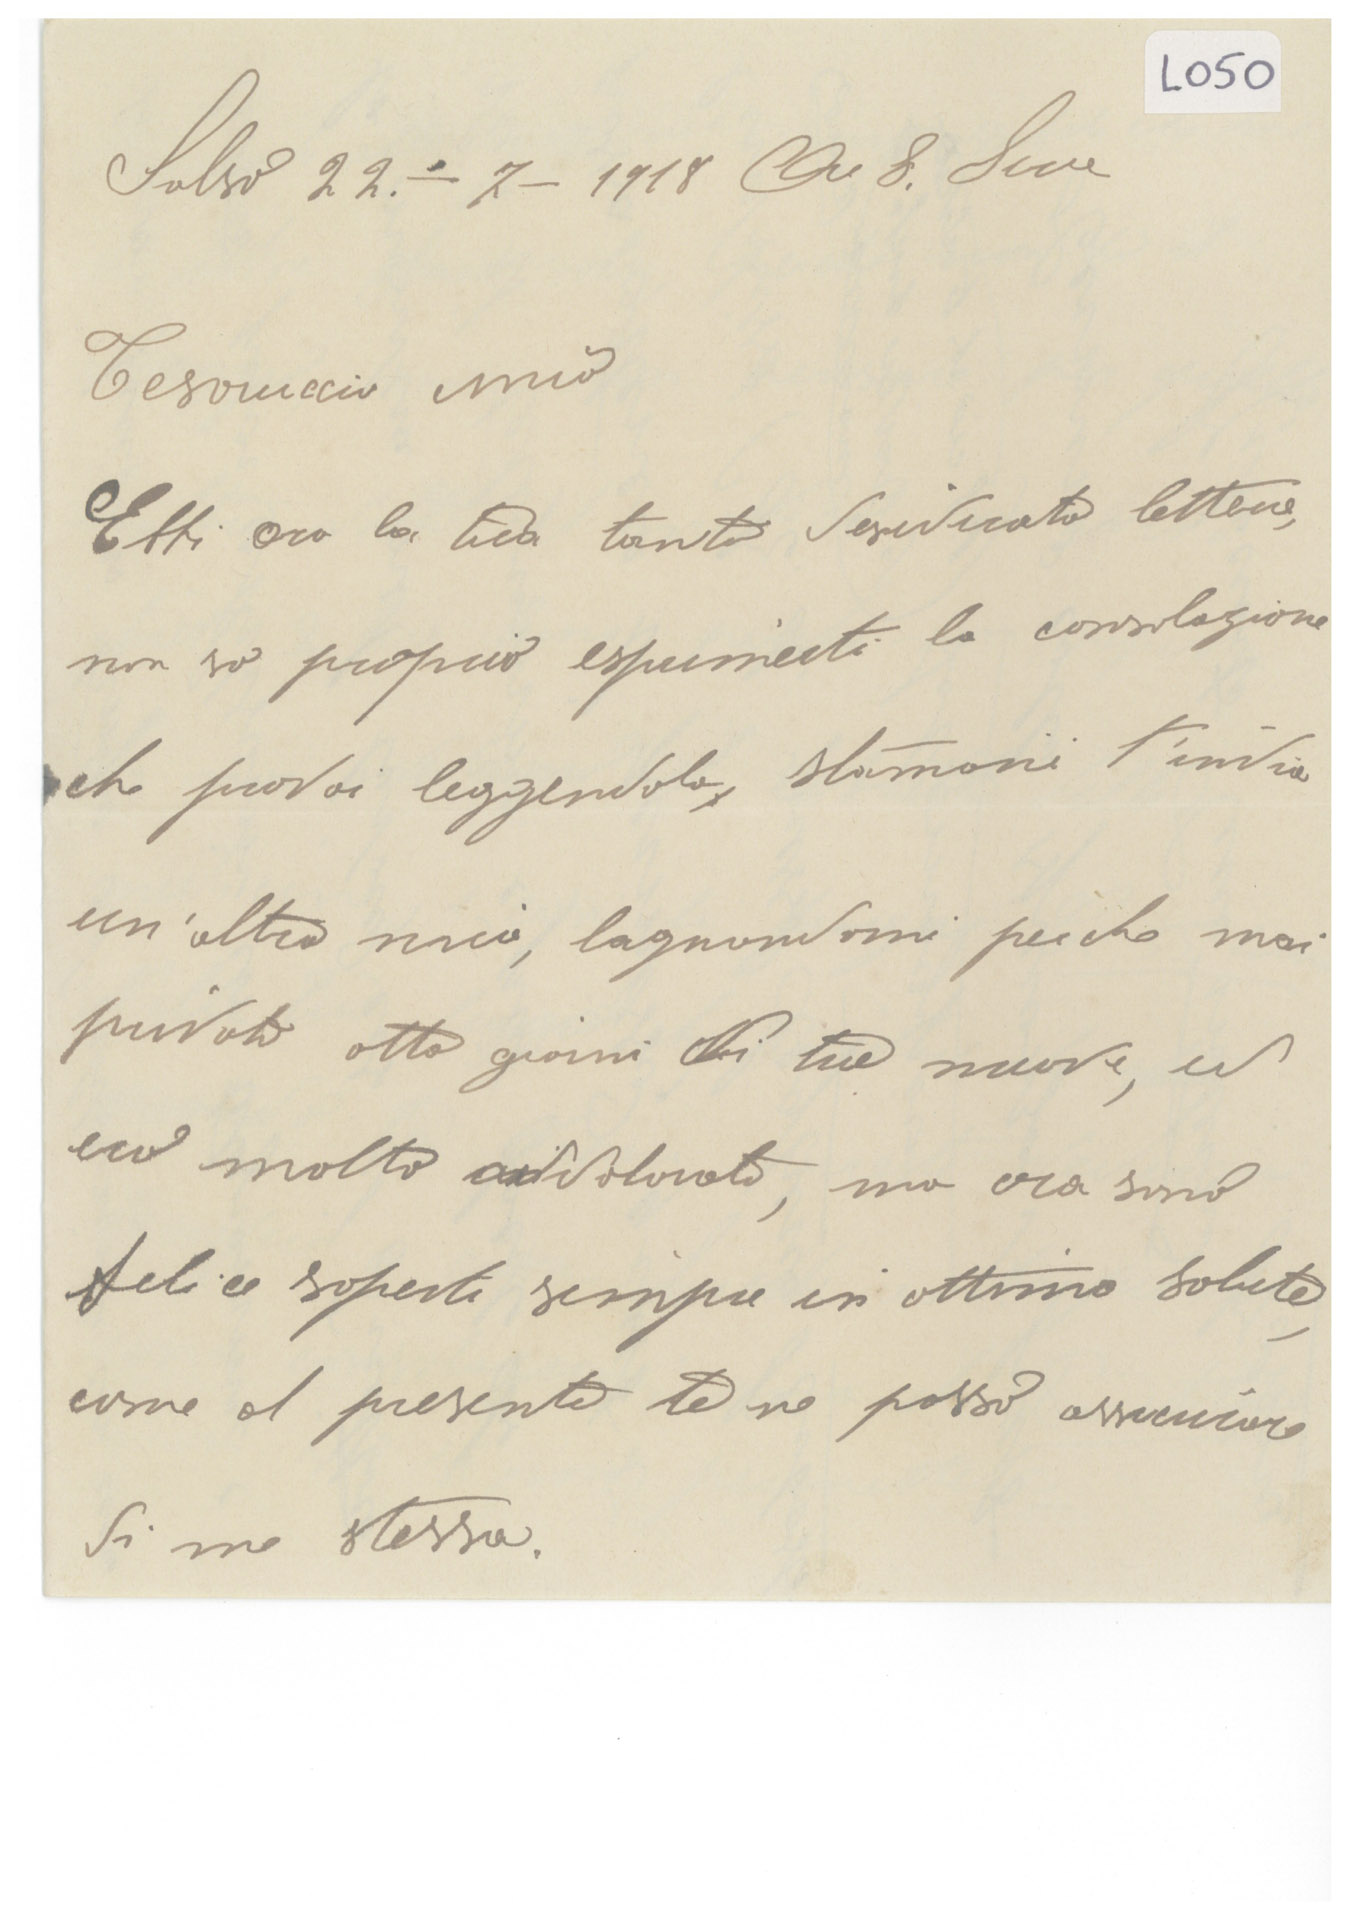 L050
Salsò 22.- 7- 1918 Ore 8. Sera
Tesoruccio mio
Ebbi ora la tua tanto desiderata lettera,
non so proprio esprimerti la consolazione
che provai leggendola, stamani t'inviai
un'altra mia, lagnandomi perche mai
privato otto giorni di tue nuove, ed
ero molto addolorata, ma ora sono
felice saperti sempre in ottima salute,
come al presente te ne posso assicurare
di me stessa.